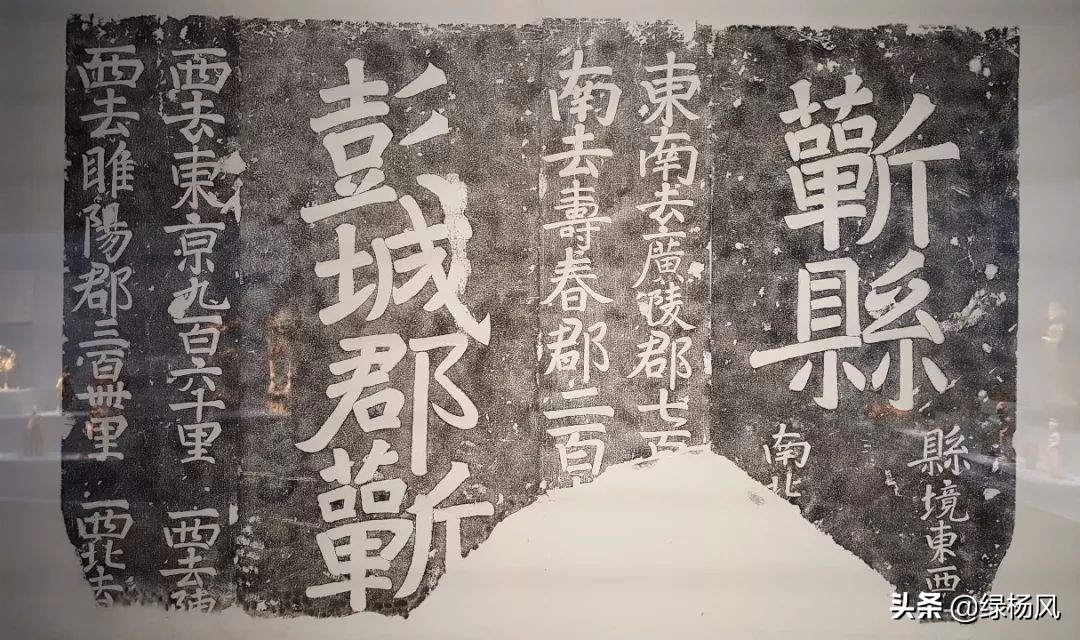 蘄縣
縣境東西
南北
東南去廣陵郡七百
南去壽春郡二百
彭城郡蘄
西去東京九百六十里 西去陳
西去睢陽郡三百卌里 西北去
头条 @绿杨风